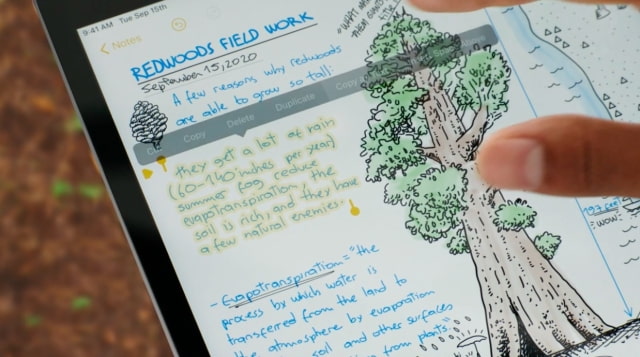 9:41 AM Tue Sep 15th
Notes
REDWOODS FIELD WORK
September 15, 2020
A few reasons why redwoods
are able to grow so tall:
Copy Delete Duplicate
they get a lot of rain
(60-140 inches per year)
summer fog reduce
evapotranspiration, the
soil is rich, and they have
a few natural enemies.
- Evapotranspiration = "the
process by which water is
transferred from the land to
the atmosphere by evaporation
soil and other surfaces
from plants."
197 feet
"WOW!"